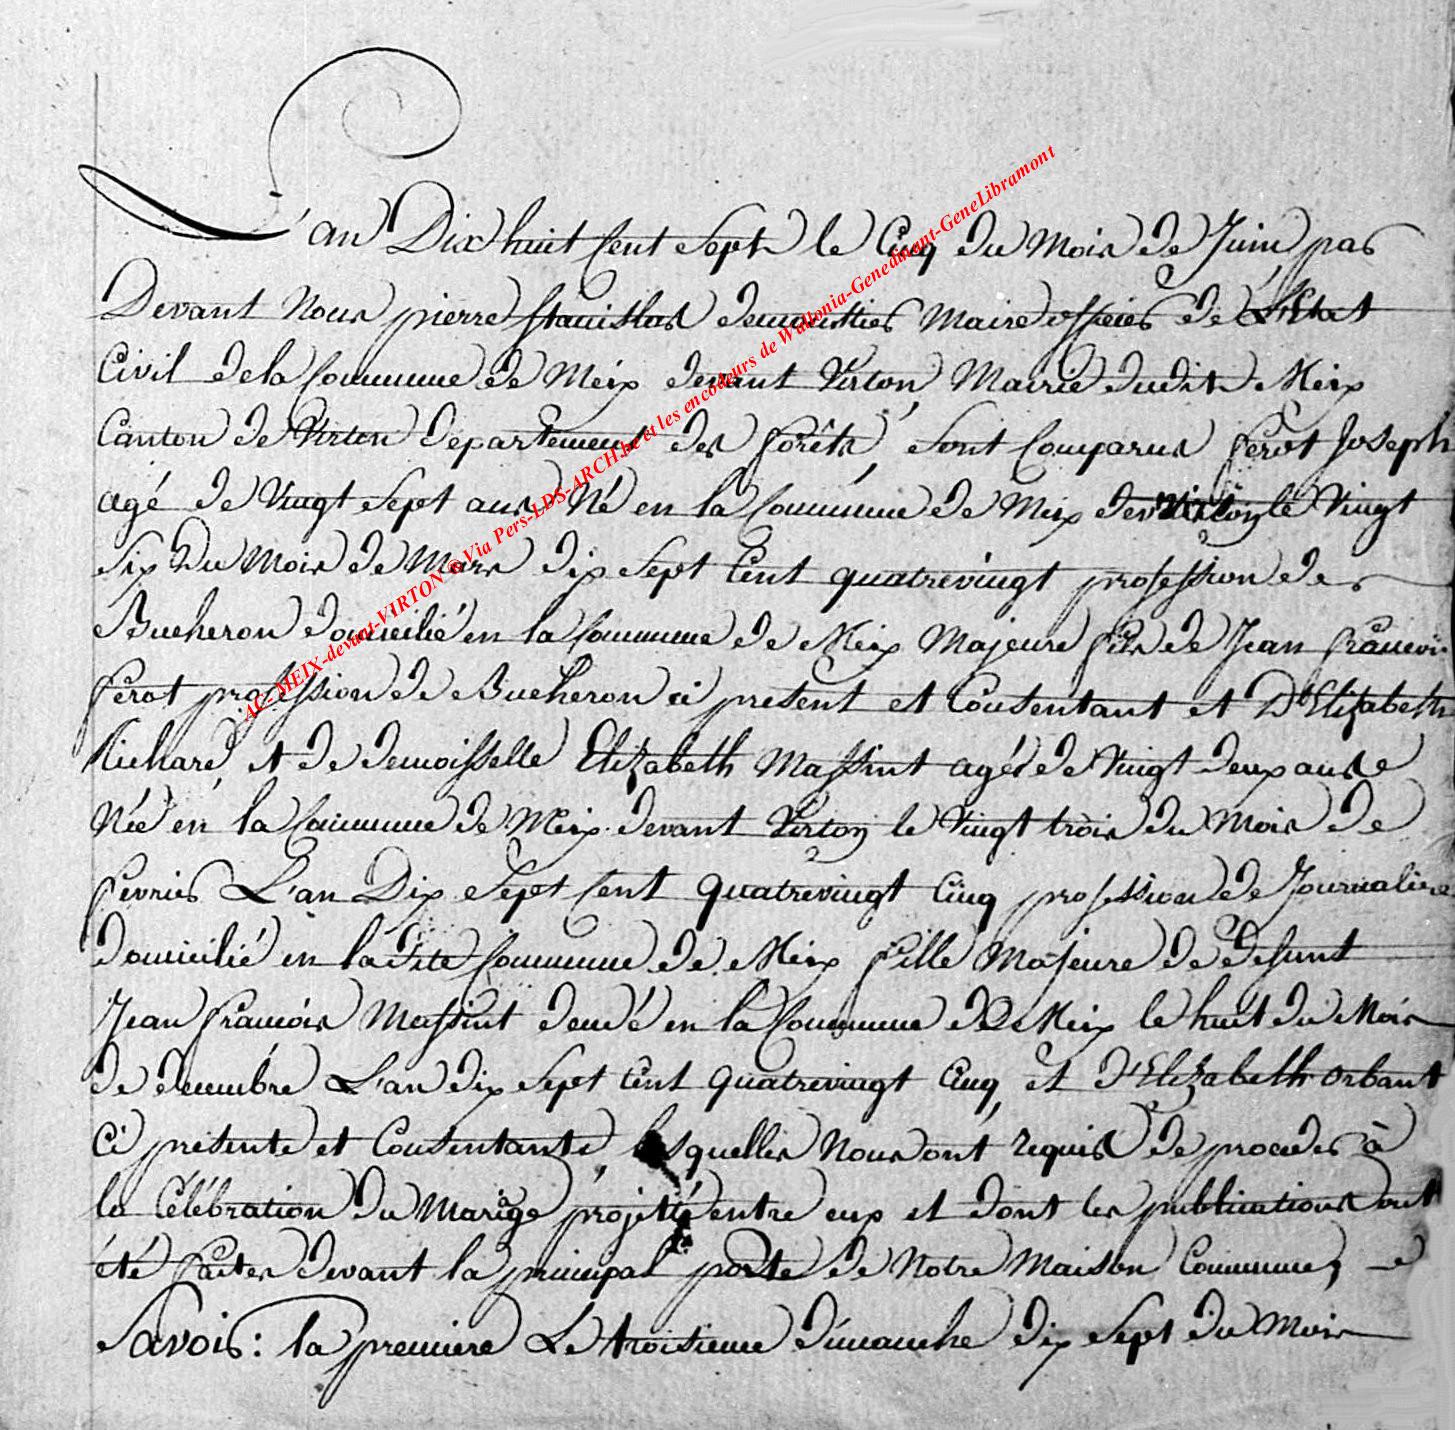 L'an Dix huit Cent Sept le Cinq du Mois de Juin par
Devant Nous pierre Stanislas Maire officier de L'Etat
Civil de la Commune de Meix devant Virton Mairie dudit Meix
Canton de Virton Departement des forêts, sont Comparus ferot Joseph
agé de Vingt Sept ans Né en la Commune de Meix dev Virton le Vingt
Six du Mois de Mars dix Sept Cent quatrevingt profession de
Bucheron domicilié en la Commune de Meix Majeure fils de Jean françois
ferot profession de Bucheron ci present et Consentant et D'Elizabeth
Richard, et de demoisselle Elizabeth Massint agée de Vingt deux ans
Née en la Commune de Meix devant Virton le Vingt trois du Mois de
fevrier L'an Dix Sept Cent quatrevingt Cinq profession de Journaliere
domicilié en la dite Commune de Meix fille Majeure de defunt
Jean françois Massint dcudé en la Commune de Meix le huit du Mois
de decembre L'an dix Sept Cent quatrevingt Cinq, et d'Elizabeth orbant
Ci presente et Consentante, lesquelles Nous ont requis de proceder à
la Célébration du Marige projetté entre eux et dont les publications ont
été faites devant la principal porte de Notre Maison Commune,
Savoir : la premiere Le troisieme dimanche dix Sept du Mois
AC-MEIX-devant-VIRTON @ Via Pers-LDS-ARCH.be et les encodeurs de Wallonia-Genedinant-GeneLibramont